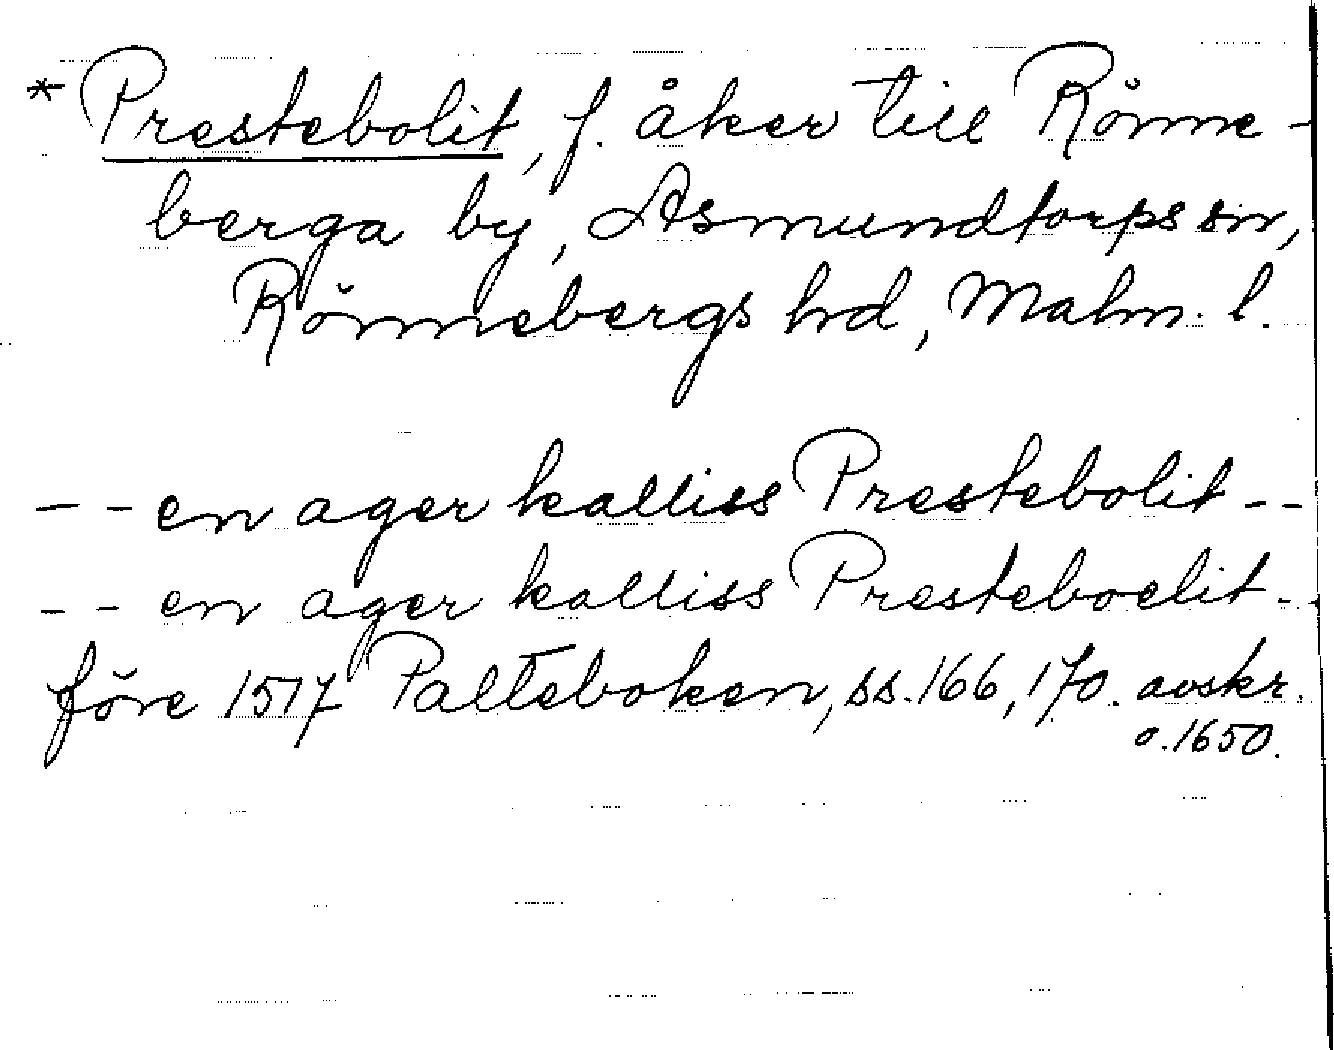 * Prestebolit, f. åker till Rönne-
berga by, Asmundtorps sn,
Rönnebergs hd, Malm. l.
- - en ager kalliss Prestebolit - -
- - en ager kalliss Presteboelit - -
före 1517 Palteboken, ss. 166, 170. avskr.
o. 1650.